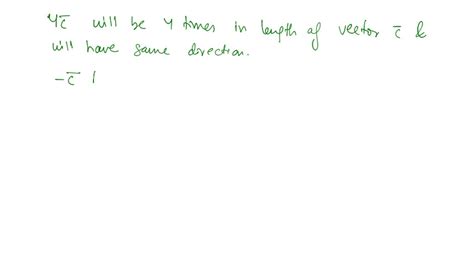 4c̄ will be 4 times in length of vector c̄ &
will have same direction.
-c̄ |